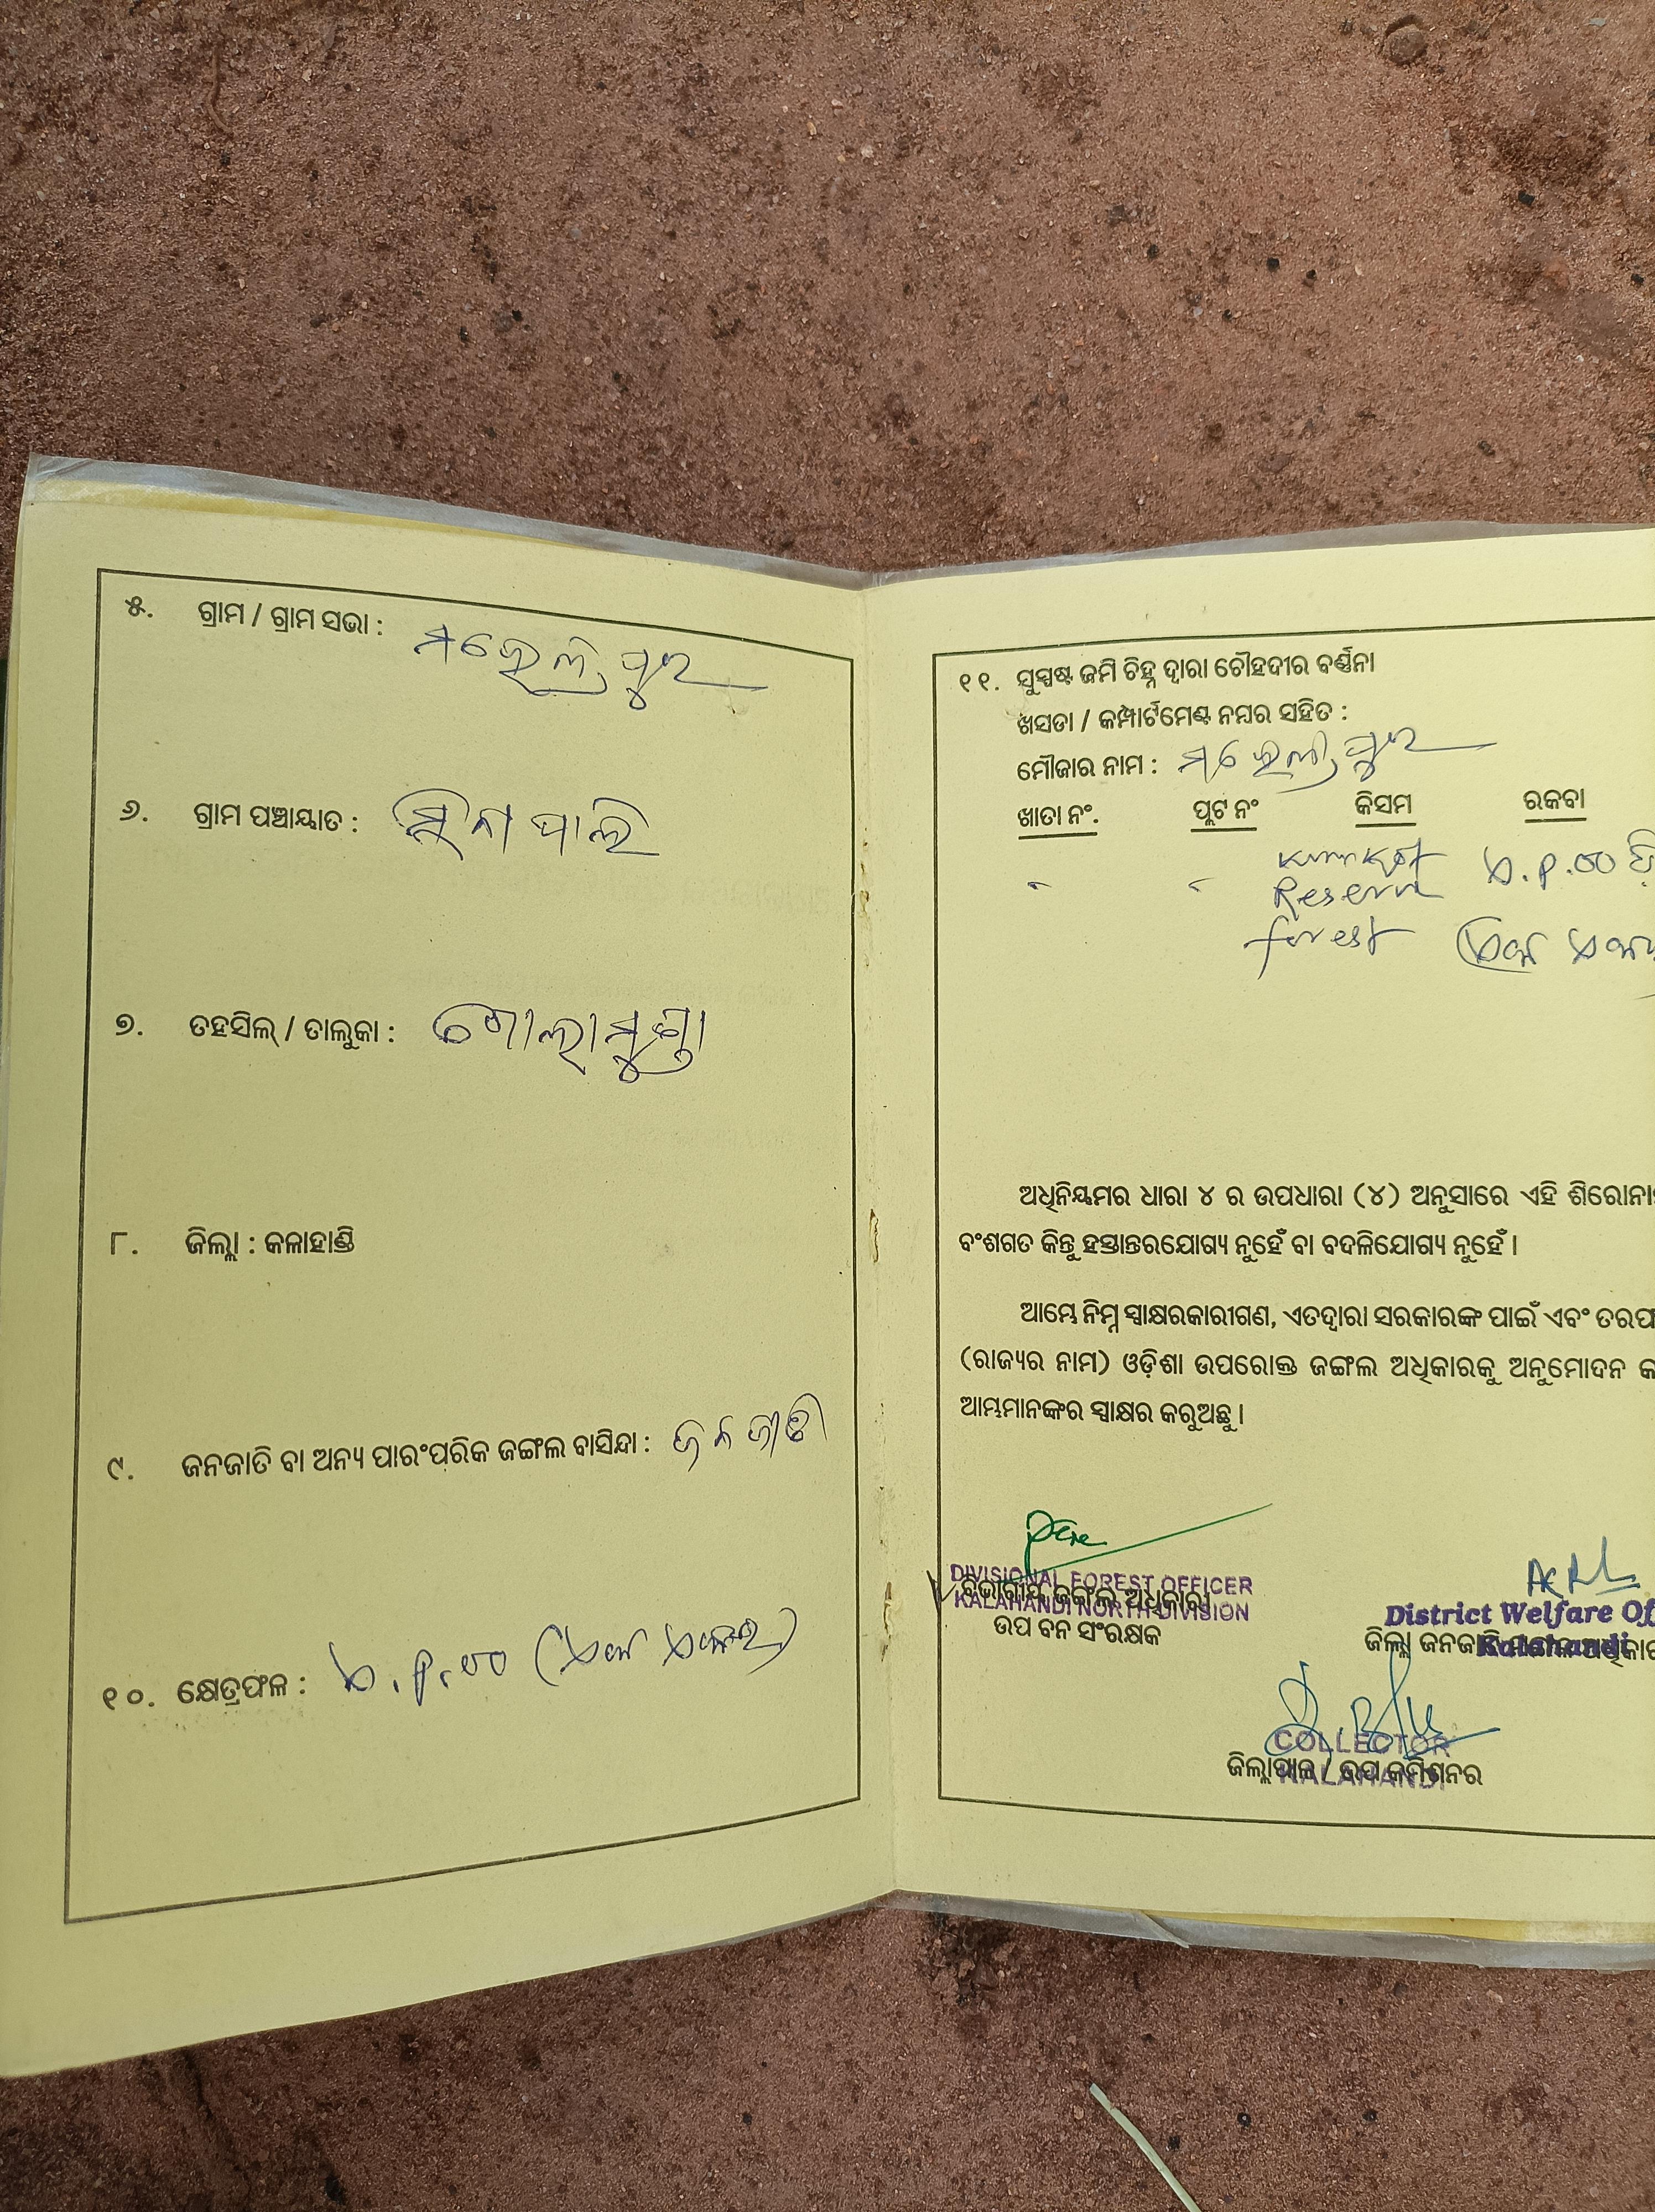 ୫. ଗ୍ରାମ / ଗ୍ରାମ ସଭା :
୬. ଗ୍ରାମ ପଞ୍ଚାୟାତ : ସୁନାପାଲି
୭. ତହସିଲ୍ / ତାଲୁକା : ଗୋଲାମୁଣ୍ଡା
୮. ଜିଲ୍ଲା : କଳାହାଣ୍ଡି
୯. ଜନଜାତି ବା ଅନ୍ୟ ପାରଂପରିକ ଜଙ୍ଗଲ ବାସିନ୍ଦା : ଜନଜାତୀ
୧୦. କ୍ଷେତ୍ରଫଳ :
୧୧. ସୁସ୍ପଷ୍ଟ ଜମି ଚିହ୍ନ ଦ୍ୱାରା ଚୌହଦୀର ବର୍ଣ୍ଣନା
ଖସଡା / କମ୍ପାର୍ଟମେଣ୍ଟ ନମ୍ବର ସହିତ :
ମୌଜାର ନାମ :
ଖାତା ନଂ. ପ୍ଲଟ ନଂ କିସମ ରକବା
Reserve
forest
ଅଧିନିୟମର ଧାରା ୪ ର ଉପଧାରା (୪) ଅନୁସାରେ ଏହି ଶିରୋନା
ବଂଶଗତ କିନ୍ତୁ ହସ୍ତାନ୍ତରଯୋଗ୍ୟ ନୁହେଁ ବା ବଦଳିଯୋଗ୍ୟ ନୁହେଁ ।
ଆମ୍ଭେ ନିମ୍ନ ସ୍ୱାକ୍ଷରକାରୀଗଣ, ଏତଦ୍ୱାରା ସରକାରଙ୍କ ପାଇଁ ଏବଂ ତରଫ
(ରାଜ୍ୟର ନାମ) ଓଡ଼ିଶା ଉପରୋକ୍ତ ଜଙ୍ଗଲ ଅଧିକାରକୁ ଅନୁମୋଦନ କ
ଆମ୍ଭମାନଙ୍କର ସ୍ୱାକ୍ଷର କରୁଅଛୁ ।
DIVISIONAL FOREST OFFICER
KALAHANDI NORTH DIVISION
ବିଭାଗୀୟ ଜଙ୍ଗଲ ଅଧିକାରୀ
ଉପ ବନ ସଂରକ୍ଷକ
District Welfare Of
Kalahandi
ଜିଲ୍ଲା ଜନଜାତି
COLLECTOR
KALAHANDI
ଜିଲ୍ଲାପାଳ / ଉପ କମିଶନର